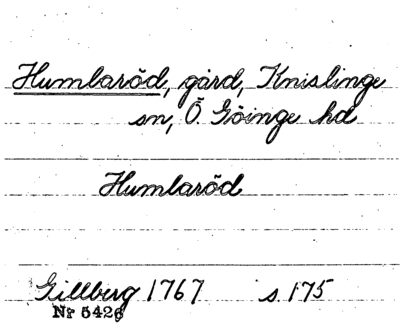 Humlaröd, gård, Knislinge
sn, Ö. Göinge hd
Humlaröd
Gillberg 1767 s. 175
Nr 5426